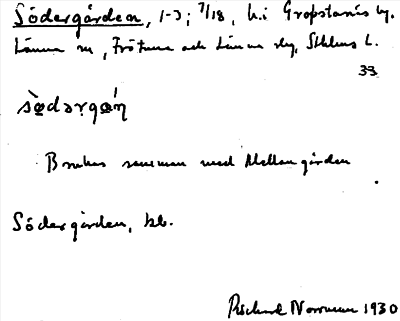 Södergården, 1-3; 7/18, h. i Gropstanäs by.
Länna sn, Frötuna och Länna skg, Sthlms l.
33
sǿdərgɑ̷́ṇ
Brukas samman med Mellangården
Södergården, bb.
Richard Norrman 1930